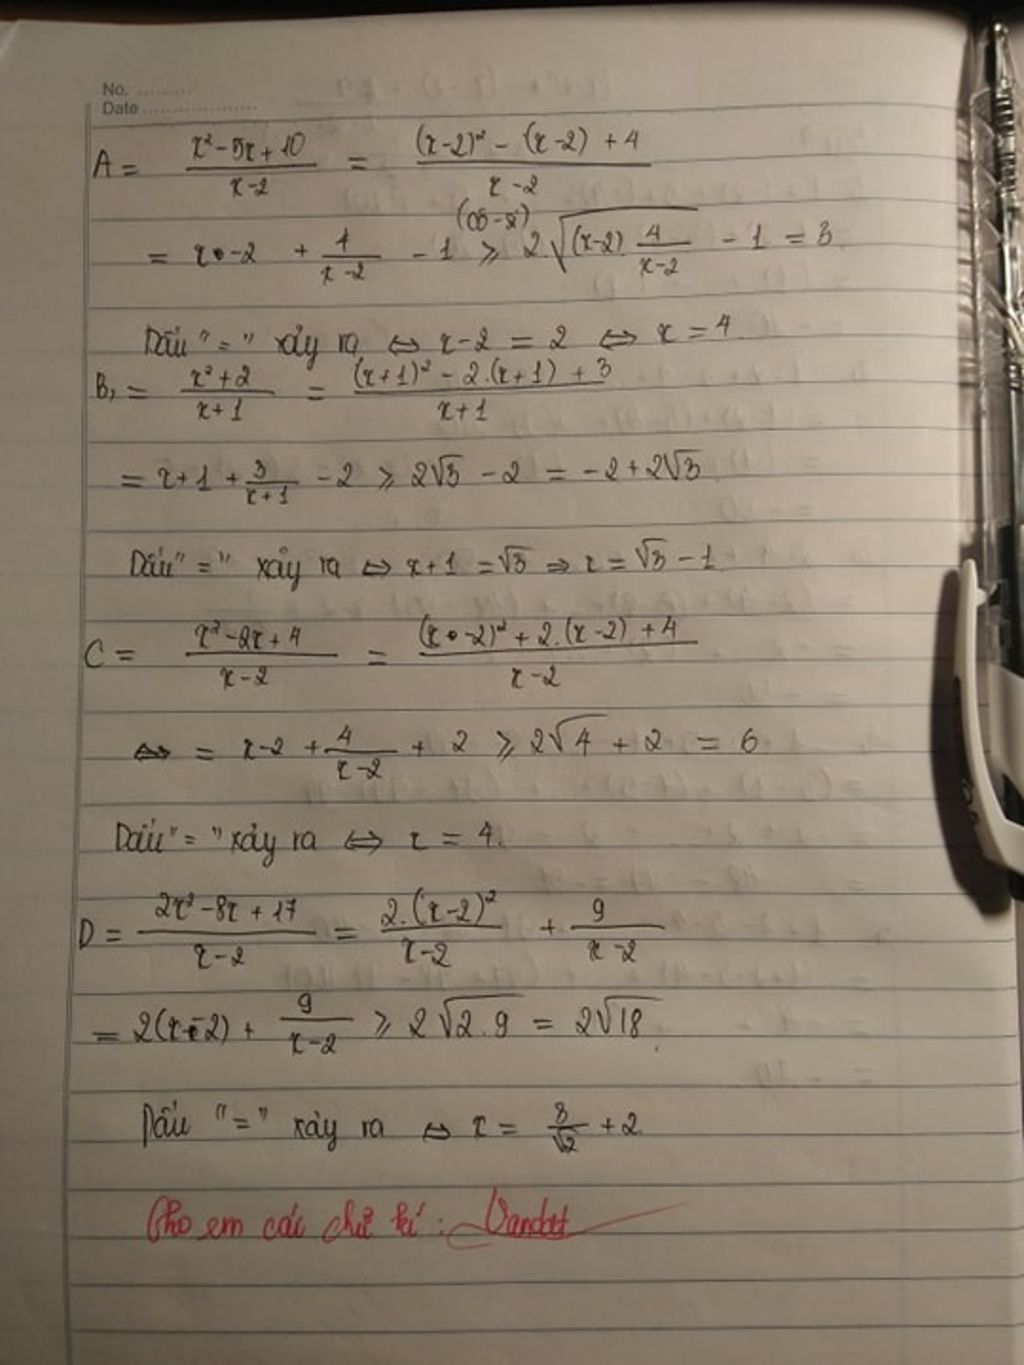 No. ..........
Date ....................
A = (x² - 5x + 10)/(x - 2) = ((x-2)² - (x-2) + 4)/(x - 2)
= x - 2 + 4/(x-2) - 1 ≥ (cô-si) 2√((x-2) 4/(x-2)) - 1 = 3
Dấu "=" xảy ra ⇔ x-2 = 2 ⇔ x = 4
B, = (x² + 2)/(x + 1) = ((x+1)² - 2.(x+1) + 3)/(x + 1)
= x+1 + 3/(x+1) - 2 ≥ 2√3 - 2 = -2 + 2√3
Dấu "=" xảy ra ⇔ x+1 = √3 ⇒ x = √3 - 1
C = (x² - 2x + 4)/(x - 2) = ((x-2)² + 2.(x-2) + 4)/(x - 2)
= x-2 + 4/(x-2) + 2 ≥ 2√4 + 2 = 6
Dấu "=" xảy ra ⇔ x = 4.
D = (2x² - 8x + 17)/(x - 2) = 2.(x-2)²/(x-2) + 9/(x-2)
= 2(x-2) + 9/(x-2) ≥ 2√(2.9) = 2√18.
Dấu "=" xảy ra ⇔ x = 3/√2 + 2
Cho em cái chữ kí : Vandat